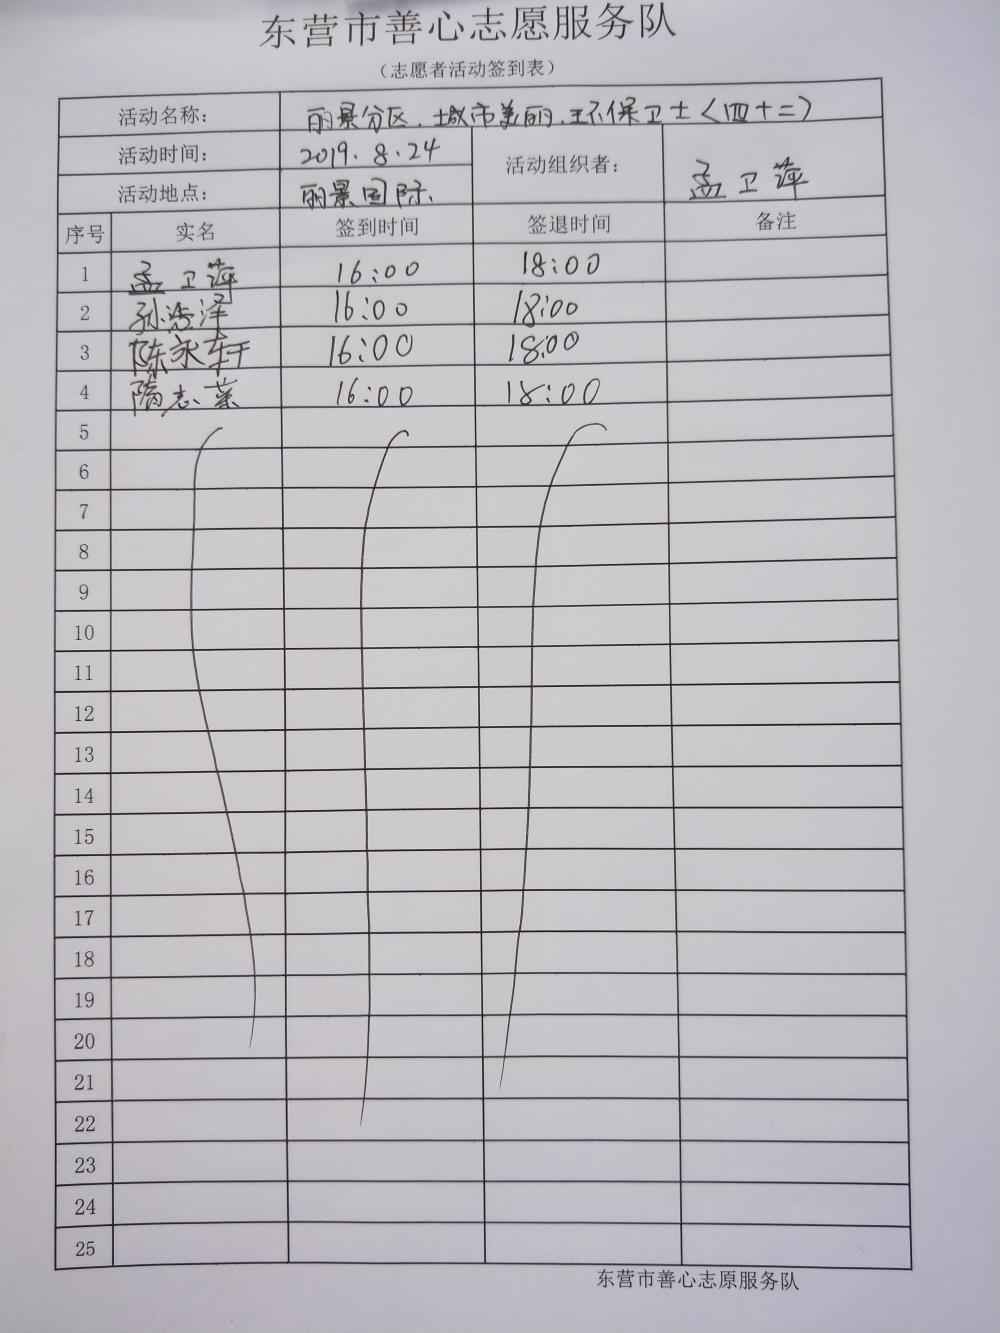 东营市善心志愿服务队
（志愿者活动签到表）
活动名称： 丽景分区.城市美丽.环保卫士〈四十二〉
活动时间： 2019.8.24 活动组织者： 孟卫萍
活动地点： 丽景国际.
序号 实名 签到时间 签退时间 备注
1 孟卫萍 16:00 18:00
2 孙浩泽 16:00 18:00
3 陈永轩 16:00 18:00
4 隋志 16:00 18:00
5
6
7
8
9
10
11
12
13
14
15
16
17
18
19
20
21
22
23
24
25
东营市善心志原服务队